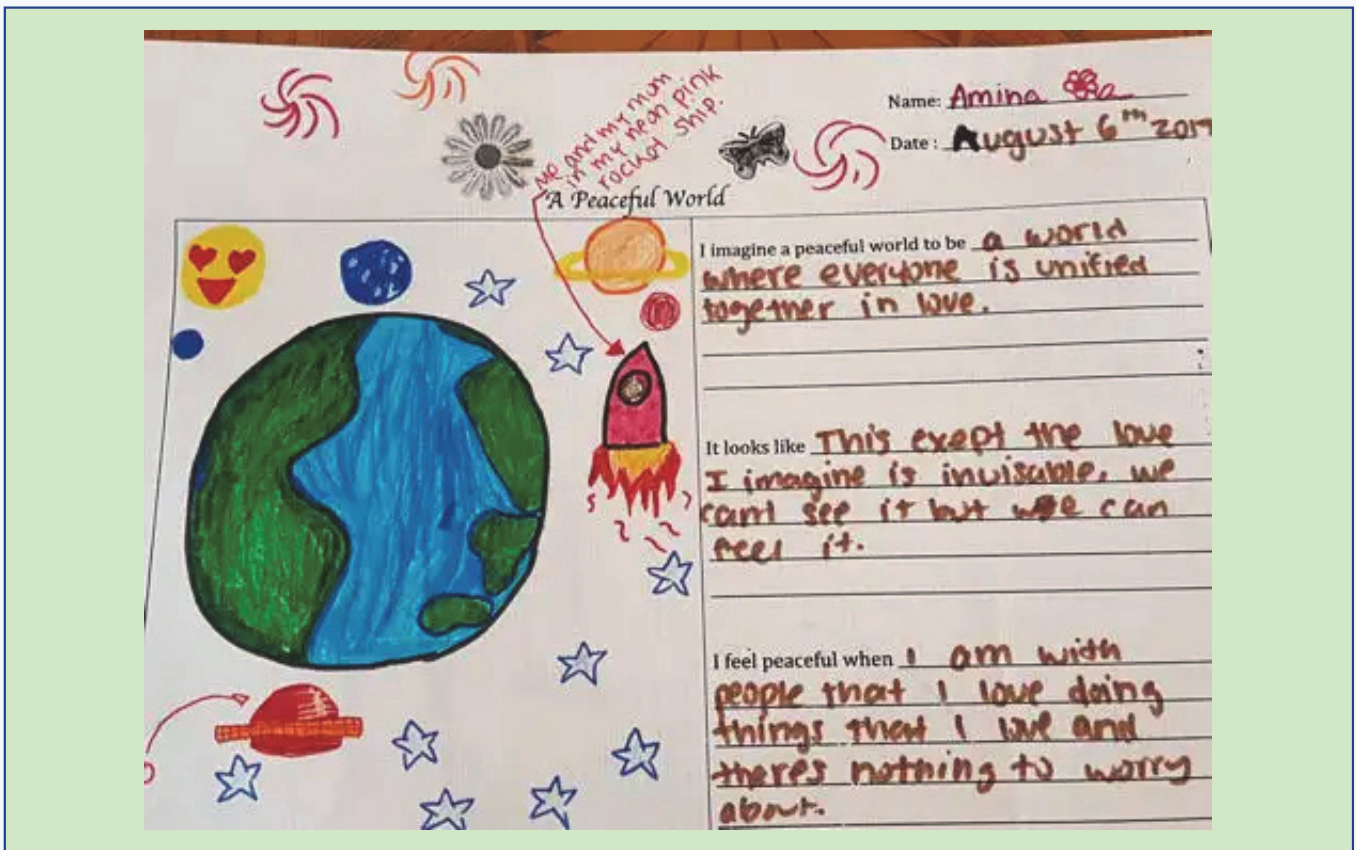 Me and my mum
in my neon pink
rocket ship.
Name: Amina
Date : August 6th 2017
A Peaceful World
I imagine a peaceful world to be a world
where everyone is unified
together in love.
It looks like This exept the love
I imagine is invisable, we
cant see it but we can
feel it.
I feel peaceful when I am with
people that I love doing
things that I love and
theres nothing to worry
about.